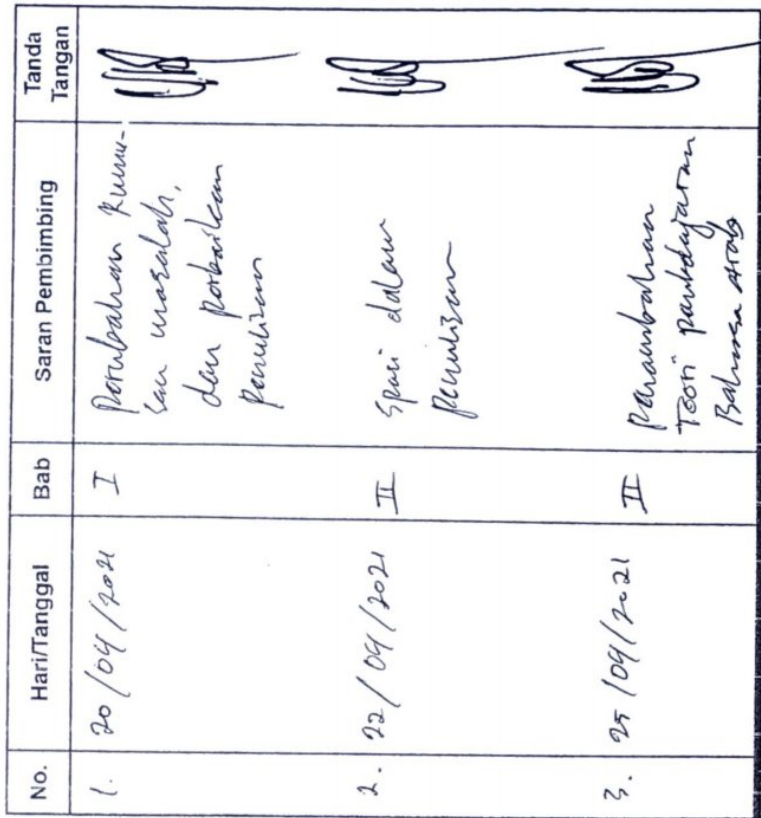 No. Hari/Tanggal Bab Saran Pembimbing Tanda Tangan
1. 20/04/2021 I Perubahan Rumu-
san masalah,
dan perbaikan
penulisan
2. 22/04/2021 II Spasi dalam
penulisan
3. 25/04/2021 II Penambahan
Teori pembelajaran
Bahasa Arab